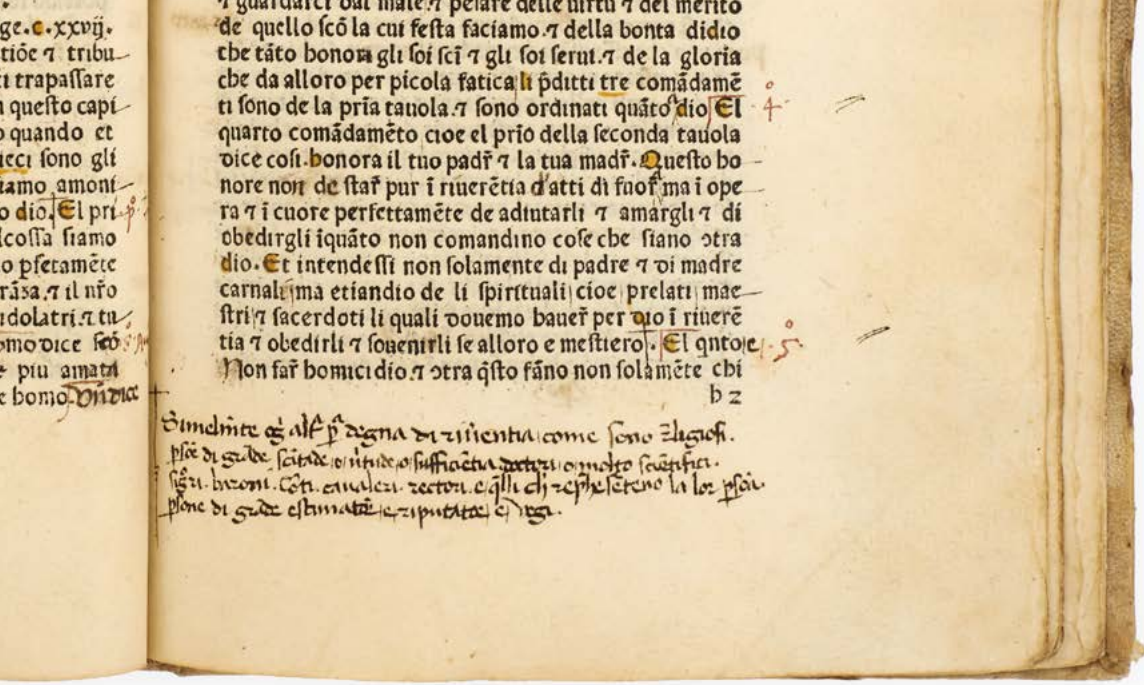 ge.c.xxvij.
tiõe ⁊ tribu
i trapassare
questo capi
o quando et
ieci sono gli
iamo amoni
o dio. El pri
lcossa siamo
o ꝑfetamẽte
rãza.⁊ il nr̃o
idolatri.⁊ tu
omo dice scõ
piu amata
e homo.
⁊ guardarci dal male.⁊ pesare delle uirtu ⁊ del merito
de quello scõ la cui festa faciamo.⁊ della bonta didio
che tãto honora gli soi scĩ ⁊ gli soi serui.⁊ de la gloria
che da alloro per picola fatica li p̃ditti tre comãdamẽ
ti sono de la pria tauola.⁊ sono ordinati quãto a dio El
4º
quarto comãdamẽto cioe el prio della seconda tauola
dice cosi.honora il tuo padr̃ ⁊ la tua madr̃. Questo ho
nore non de star̃ pur ĩ riuerẽtia d'atti di fuor̃ ma ĩ ope
ra ⁊ ĩ cuore perfettamẽte de adiutarli ⁊ amargli ⁊ di
obedirgli ĩquãto non comandino cose che siano ↄtra
dio. Et intendessi non solamente di padre ⁊ di madre
carnali ma etiandio de li spirituali cioe prelati mae
stri ⁊ sacerdoti li quali douemo hauer̃ per dio ĩ riuerẽ
tia ⁊ obedirli ⁊ souenirli se alloro e mestiero. El qnto e
5º
Non far̃ homicidio.⁊ ↄtra q̃sto fãno non solamẽte chi
b 2
Simelm̃te degna di come sono religiosi.
di grãde o sufficiẽtia doctori o molto sciẽtifici.
baroni. cõti. caualeri. rectori. e q̃lli la lor
di grãde e riputatõe e